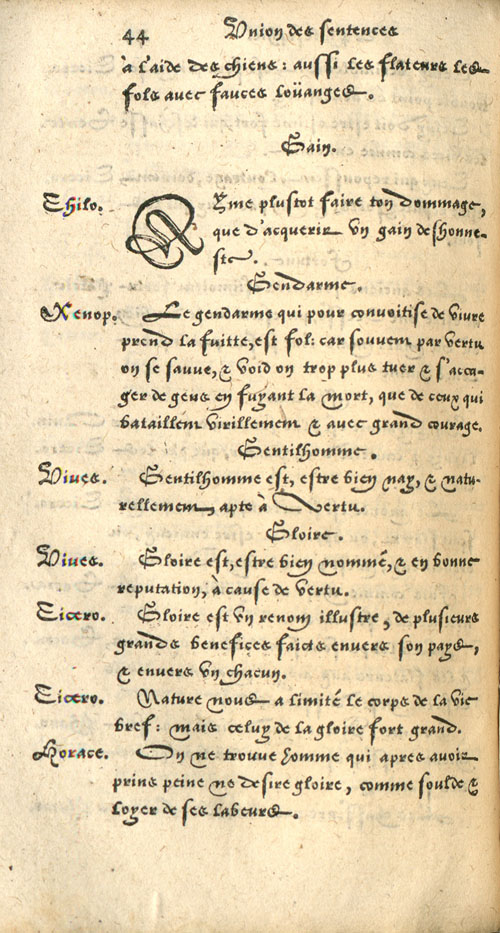 44 Vnion des sentences
à l'aide des chiens: aussi les flateurs les
fols auec fauces loüanges.
Gain.
Chilo. AYme plustot faire ton dommage,
que d'acquerir vn gain deshonne-
ste.
Gendarme.
Xenop. Le gendarme qui pour conuoitise de viure
prend la fuitte, est fol: car souuent par vertu
on se sauue, & void on trop plus tuer & s'acca-
ger de gens en fuyant la mort, que de ceux qui
bataillent virillement & auec grand courage.
Gentilhomme.
Viues. Gentilhomme est, estre bien nay, & natu-
rellement apte à Vertu.
Gloire.
Viues. Gloire est, estre bien nommé, & en bonne
reputation, à cause de vertu.
Cicero. Gloire est vn renom illustre, de plusieurs
grands benefices faicts enuers son pays,
& enuers vn chacun.
Cicero. Nature nous a limité le corps de la vie
bref: mais celuy de la gloire fort grand.
Horace. On ne trouue homme qui apres auoir
prins peine ne desire gloire, comme soulde &
loyer de ses labeurs.